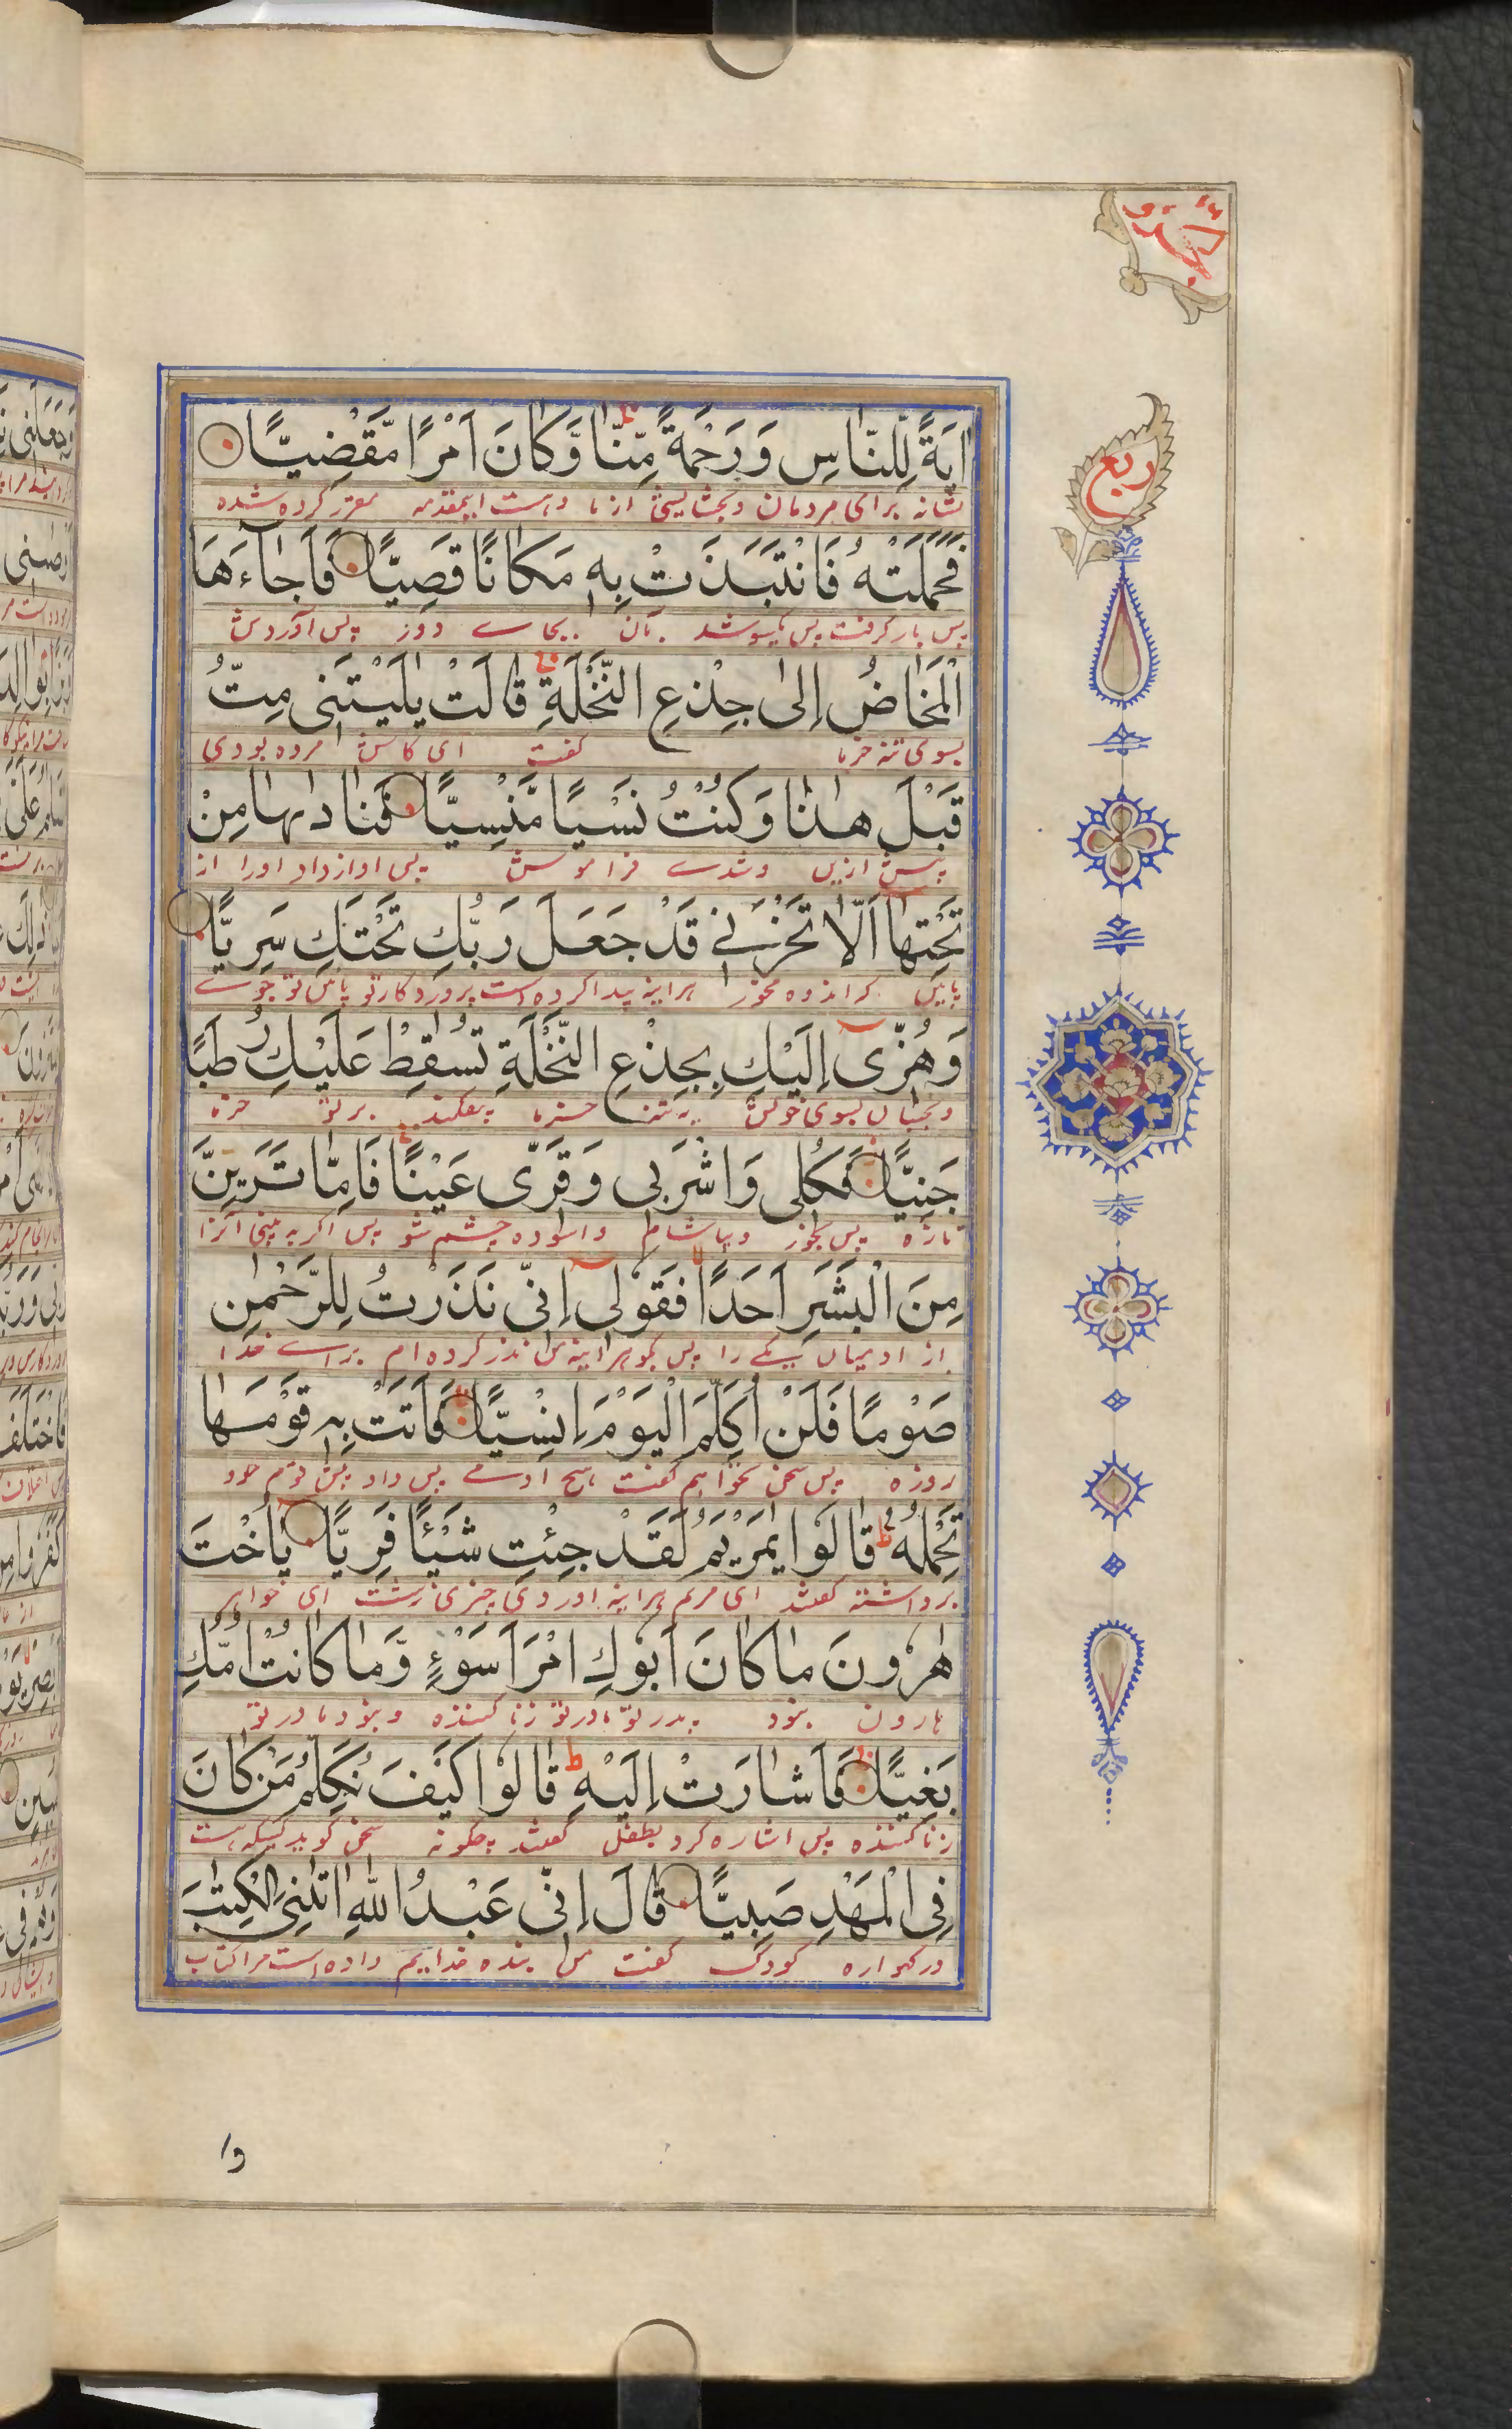 ربع
اٰيَةً لِّلنَّاسِ وَرَحْمَةً مِّنَّا وَّكَانَ اَمْرًا مَّقْضِيًّا
نشانه برای مردمان و بخشایشی از ما و است اینمقدمه مقرر کرده شده
فَحَمَلَتْهُ فَانْتَبَذَتْ بِهٖ مَكَانًا قَصِيًّا فَاَجَاۤءَهَا
پس بار گرفت پس یکسو شد بآن بجاے دور پس آوردش
الْمَخَاضُ اِلٰى جِذْعِ النَّخْلَةِ قَالَتْ يٰلَيْتَنِى مِتُّ
بسوی تنه خرما گفت ای کاش مرده بودی
قَبْلَ هٰذَا وَكُنْتُ نَسْيًا مَّنْسِيًّا فَنَادٰىهَا مِنْ
پیش ازین و شدے فراموش پس اواز داد اورا از
تَحْتِهَا اَلَّا تَحْزَنِے قَدْ جَعَلَ رَبُّكِ تَحْتَكِ سَرِيًّا
پایین که اندوه مخور هراینه پیدا کرده است پروردکار تو پائین تو جوے
وَهُزِّى اِلَيْكِ بِجِذْعِ النَّخْلَةِ تُسٰقِطْ عَلَيْكِ رُطَبًا
و بجنبان بسوی خویش تنه خرما بیفکند بر تو خرما
جَنِيًّا فَكُلِى وَاشْرَبِى وَقَرِّى عَيْنًا فَاِمَّا تَرَيِنَّ
تازه پس بخور و بیاشام و اسوده چشم شو پس اکر به بینی
مِنَ الْبَشَرِ اَحَدًا فَقُوْلِى اِنِّى نَذَرْتُ لِلرَّحْمٰنِ
از ادمیان یکے را پس بکو هراینه من نذر کرده ام براے خدا
صَوْمًا فَلَنْ اُكَلِّمَ الْيَوْمَ اِنْسِيًّا فَاَتَتْ بِهٖ قَوْمَهَا
روزه پس سخن نخواهم گفت هیچ ادمے پس قوم خود
تَحْمِلُهٗ قَالُوا يٰمَرْيَمُ لَقَدْ جِئْتِ شَيْـًٔا فَرِيًّا يٰاُخْتَ
برداشته گفتند ای مریم هراینه اوردی چیزی زشت ای خواهر
هٰرُوْنَ مَا كَانَ اَبُوْكِ امْرَاَ سَوْءٍ وَّمَا كَانَتْ اُمُّكِ
هارون نبود پدر تو زنا کننده و نبود مادر تو
بَغِيًّا فَاَشَارَتْ اِلَيْهِ قَالُوْا كَيْفَ نُكَلِّمُ مَنْ كَانَ
زنا کننده پس اشاره کرد بطفل گفتند چکونه سخن گوید کسیکه هست
فِى الْمَهْدِ صَبِيًّا قَالَ اِنِّى عَبْدُ اللّٰهِ اٰتٰىنِىَ الْكِتٰبَ
در گهواره کودک گفت من بنده خدایم داده است مرا کتاب
وا